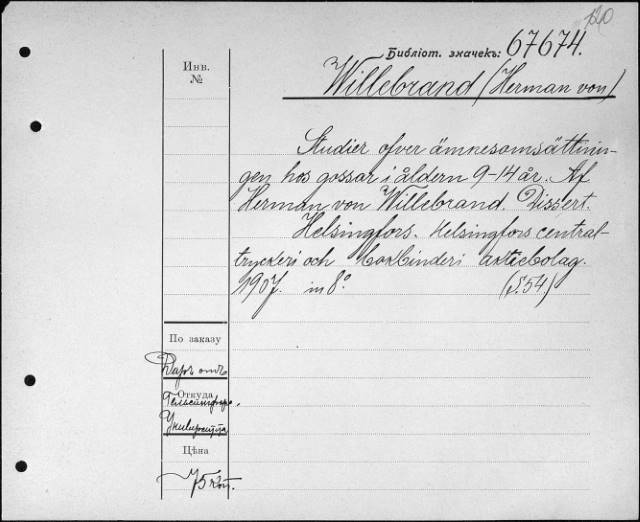 120
Библіот. значекъ: 67674.
Инв.
№
Willebrand (Herman von)
Studier ofver ämnesomsättnin-
gen hos gossar i åldern 9-14 år. Af
Herman von Willebrand. Dissert.
Helsingfors. Helsingfors central-
tryckeri och bokbinderi aktiebolag.
1907. in 8°. (S. 54.)
По заказу
Даръ отъ
Откуда
Гельсингфорс.
Университета
Цѣна
75 коп.